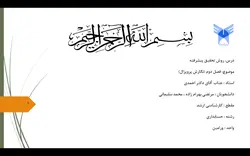 بسم الله الرحمن الرحیم
درس: روش تحقیق پیشرفته
موضوع: فصل دوم (نگارش پروپزال)
استاد : جناب آقای دکتر احمدی
دانشجویان : مرتضی بهرام زاده ـ محمد سلیمانی
مقطع : کارشناسی ارشد
رشته : حسابداری
واحد : ورامین